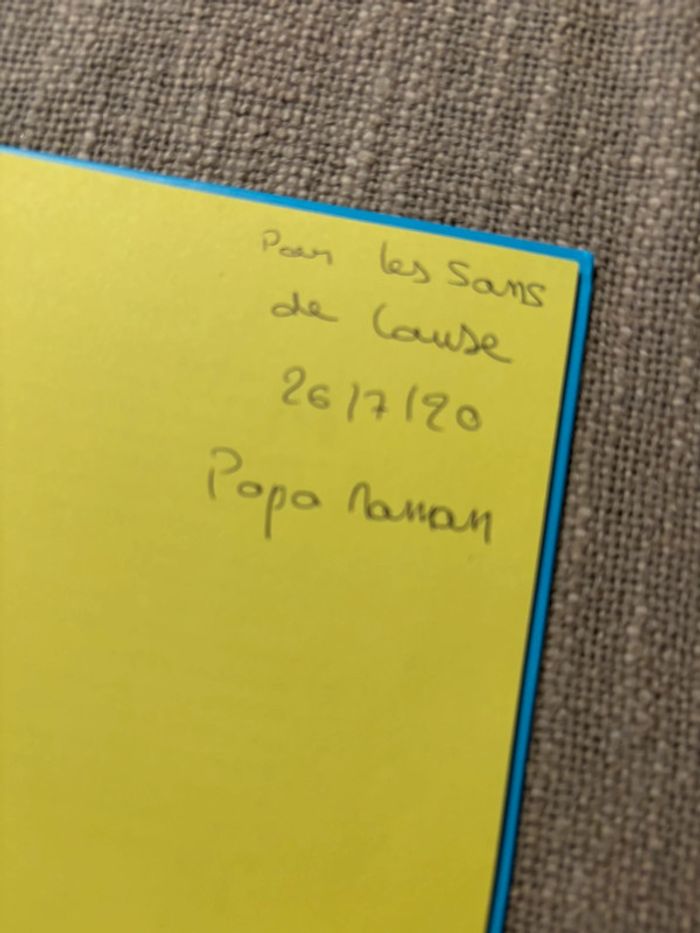 Pour les 5 ans
de Louise
26/7/20
Papa Maman